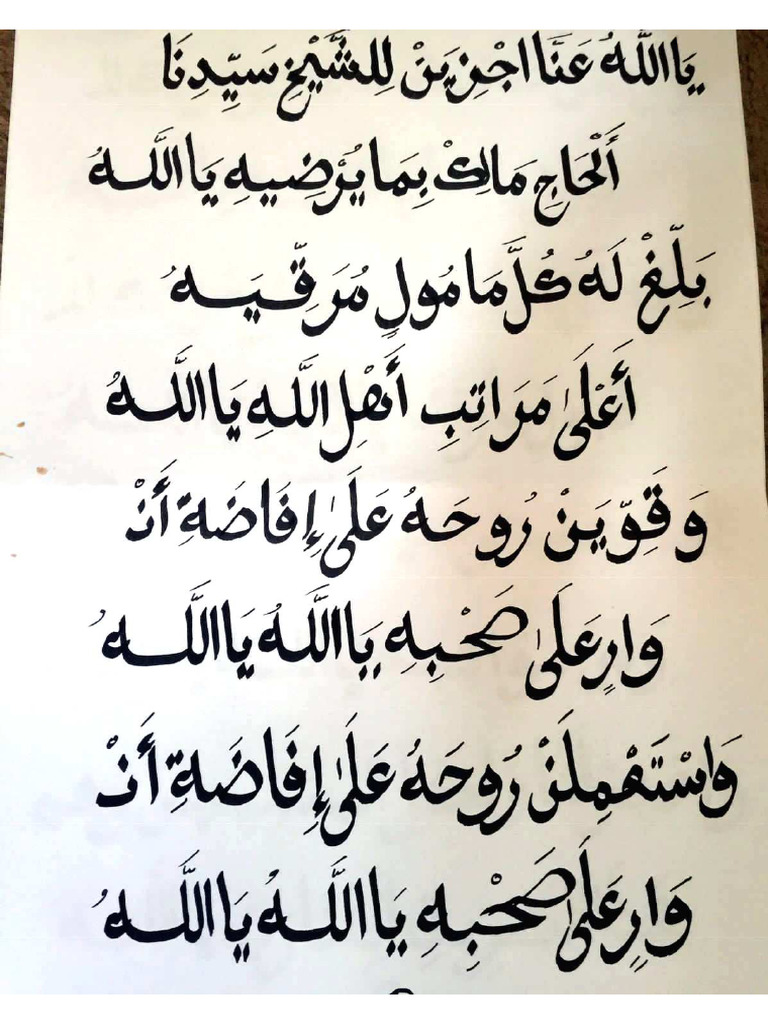 يَا اللَّهُ عَنَّا اجْزِيَنْ لِلشَّيْخِ سَيِّدِنَا
أَلْحَاجِ مَالِكْ بِمَا يُرْضِيهِ يَا اللَّهُ
بَلِّغْ لَهُ كُلَّ مَامُولٍ مُرَقِّيَهُ
أَعْلَىٰ مَرَاتِبِ أَهْلِ اللَّهِ يَا اللَّهُ
وَقَوِّيَنْ رُوحَهُ عَلَىٰ إِفَاضَةِ أَنْ
وَارٍ عَلَىٰ صَحْبِهِ يَا اللَّهُ يَا اللَّهُ
وَاسْتَعْمِلَنْ رُوحَهُ عَلَىٰ إِفَاضَةِ أَنْ
وَارٍ عَلَىٰ صَحْبِهِ يَا اللَّهُ يَا اللَّهُ